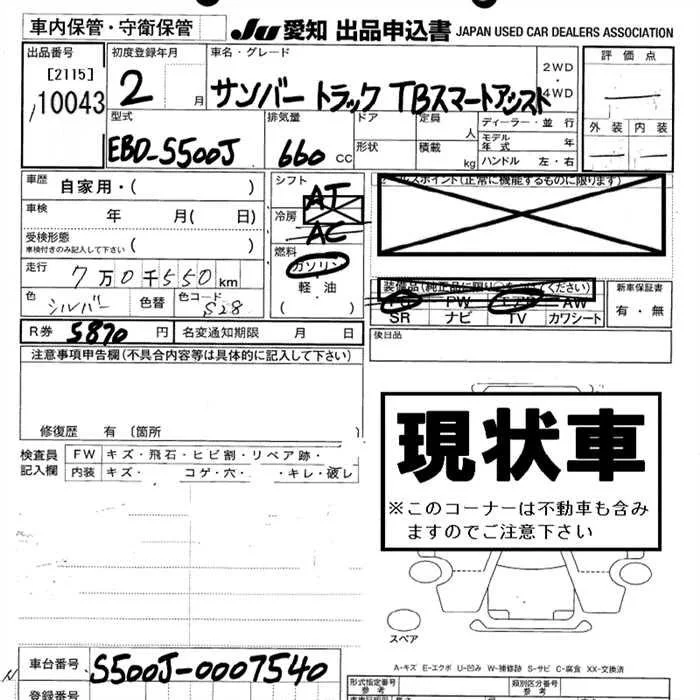 車内保管・守衛保管
JU 愛知 出品申込書 JAPAN USED CAR DEALERS ASSOCIATION
出品番号 [2115] 10043
初度登録年月 2 月
車名・グレード サンバートラック TBスマートアシスト
2WD・4WD
評価点 —
外装 — 内装 —
型式 EBD-S500J
排気量 660 CC
ドア 形状
定員 人
積載 kg
ディーラー・並行
モデル年式 年
ハンドル 左・右
車歴 自家用・( )
車検 年 月( 日)
受検形態 車検付きのみ記入して下さい ( )
走行 7万0千550km
色 シルバー 色替 色コード S28
シフト AT
冷房 AC
燃料 ガソリン
軽・油
( )
セールスポイント(正常に機能するものに限ります)
装備品(純正品に限り○をつけてください)
PS PW エアB AW
SR ナビ TV カワシート
新車保証書
有・無
R券 5870 円 名変通知期限 月 日
後日品
注意事項申告欄(不具合内容等は具体的に記入して下さい)
修復歴 有 〔箇所
検査員記入欄
FW キズ・飛石・ヒビ割・リペア跡・
内装 キズ・ コゲ・穴・ ・キレ・破レ
現状車
※このコーナーは不動車も含み
ますのでご注意下さい
スペア
A-キズ E-エクボ U-凹み W-補修跡 S-サビ C-腐食 XX-交換済
車台番号 S500J-0007540
登録番号
形式指定番号 参考
類別区分番号 参考